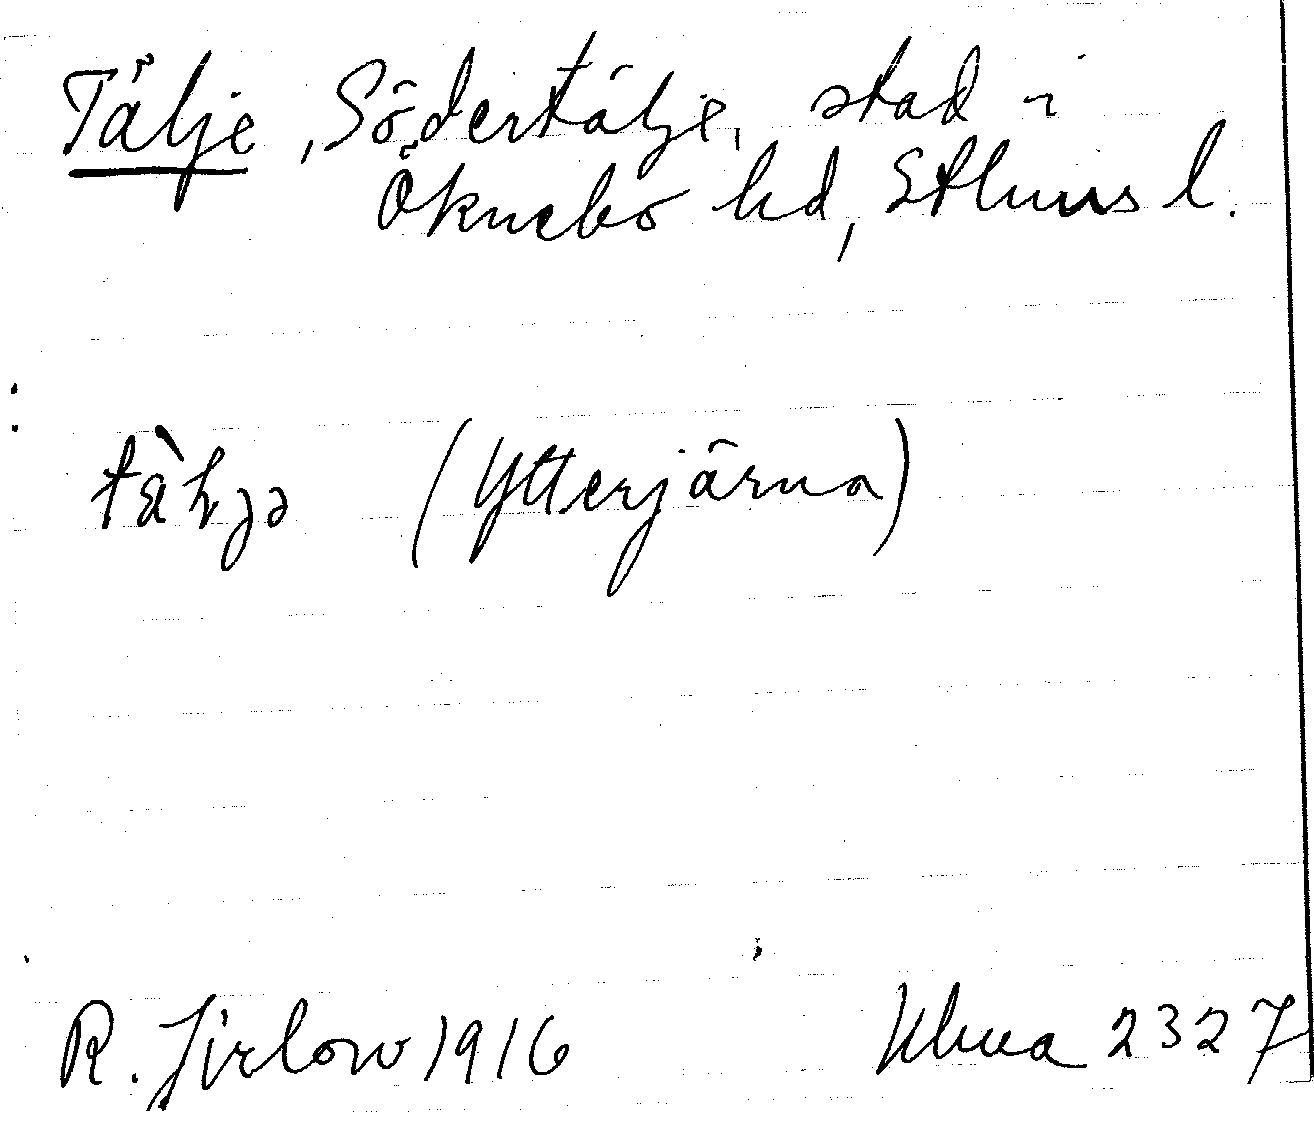 Tälje, Södertälje, stad i
Öknebo hd, Sthms l.
(Ytterjärna)
R. Jirlow 1916
Ulma 2327